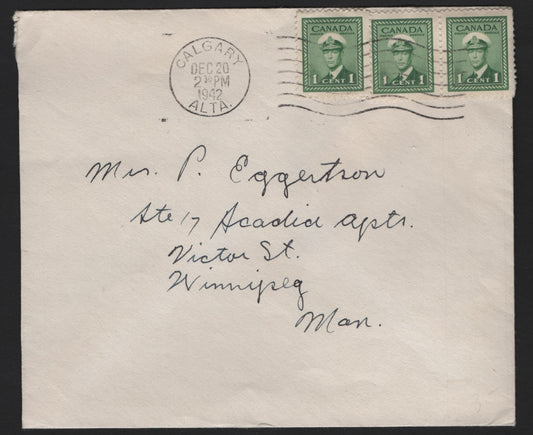 CALGARY
DEC 20
2 30 PM
1942
ALTA.
CANADA CANADA CANADA
1 CENT 1 1 CENT 1 1 CENT 1
Mrs. P. Eggertson
Ste 17 Acadia Apts.
Victor St.
Winnipeg
Man.